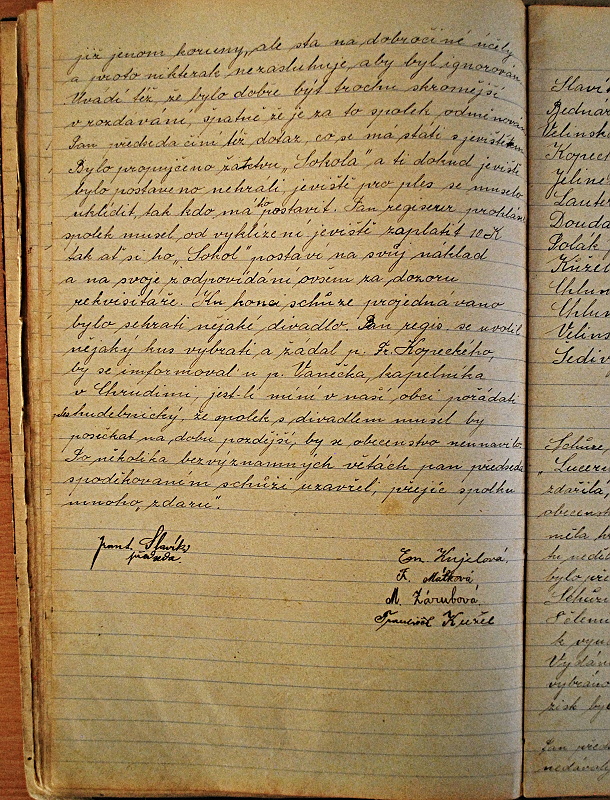 již jenom koruny, ale sta na dobročiné účely
a proto nikterak nezasluhuje, aby byl ignorován
Uvádí též že bylo dobře být trochu skromější
v rozdávání, špatné že je za to spolek odměňován
Pan předseda činí též dotaz, co se má státi s jevištěm
Bylo propujčeno žactvu „Sokola" a ti dokud jeviště
bylo postaveno nehráli, jeviště pro ples se muselo
uklidit, tak kdo má to postavit. Pan regiseur prohlásil
spolek musel od vyklízení jeviště zaplatit 10 K
tak ať si ho „Sokol" postaví na svůj náklad
a na svoje zodpovídání ovšem za dozoru
rekvisitáře. Ku konci schůze projednáváno
bylo sehrati nějaké divadlo. Pan regis. se uvolil
nějaký kus vybrati a žádal p. Fr. Kopeckého
by se imformoval u p. Vanečka, kapelníka
v Chrudimi, jest-li míní v naší obci pořádati
ples hudebnický, že spolek s divadlem musel by
posíčkat na dobu pozdější, by se obecenstvo neunavilo.
Po několika bezvýznamných větách pan předseda
spoděkováním schůzi uzavřel, přejíc spolku
mnoho „zdaru".
Frant. Slavík
předseda.
Em. Kujelová,
F. Mátková,
M. Zárubová,
František Kužel
Slavík
Bednář
Velinsk
Kopec
Jelíne
Lauter
Douda
Polák,
Kužel
Uhlun
Uhlun
Velins
Šediv
Schůze,
„Lucern
zdařila
obecenst
měla h
tu neděl
bylo pře
Schůzi
Vydán
vybráno
zisk by
Pan před
nedávaly